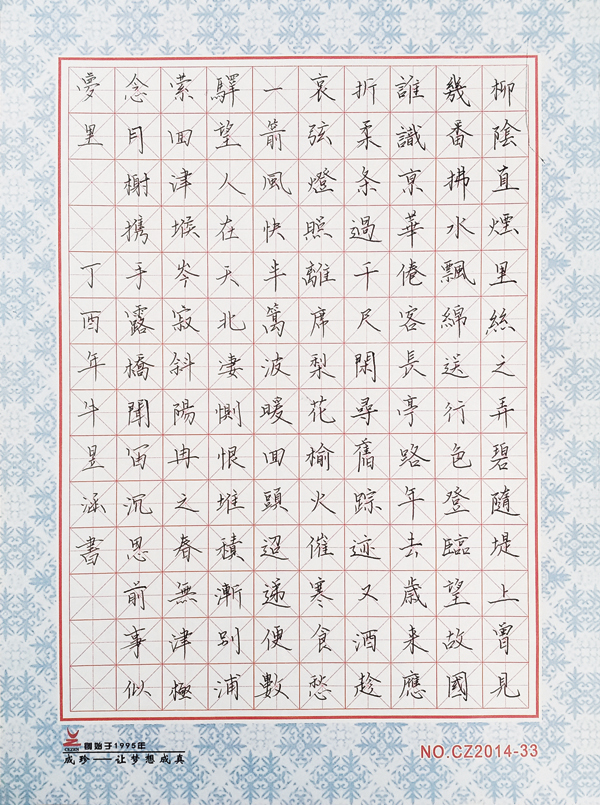 柳陰直煙里絲之弄碧隨堤上曾見
幾番拂水飄綿送行色登臨望故國
誰識京華倦客長亭路年去歲来應
折柔条過千尺閑尋舊踪迹又酒趁
哀弦燈照離席梨花榆火催寒食愁
一箭風快半篙波暖回頭迢递便數
驛望人在天北淒惻恨堆積漸别浦
萦回津堠岑寂斜陽冉之春無津極
念月榭携手露橋聞笛沉思前事似
夢里 丁酉年牛昱涵書
创始于1995年
成珍——让梦想成真
NO.CZ2014-33